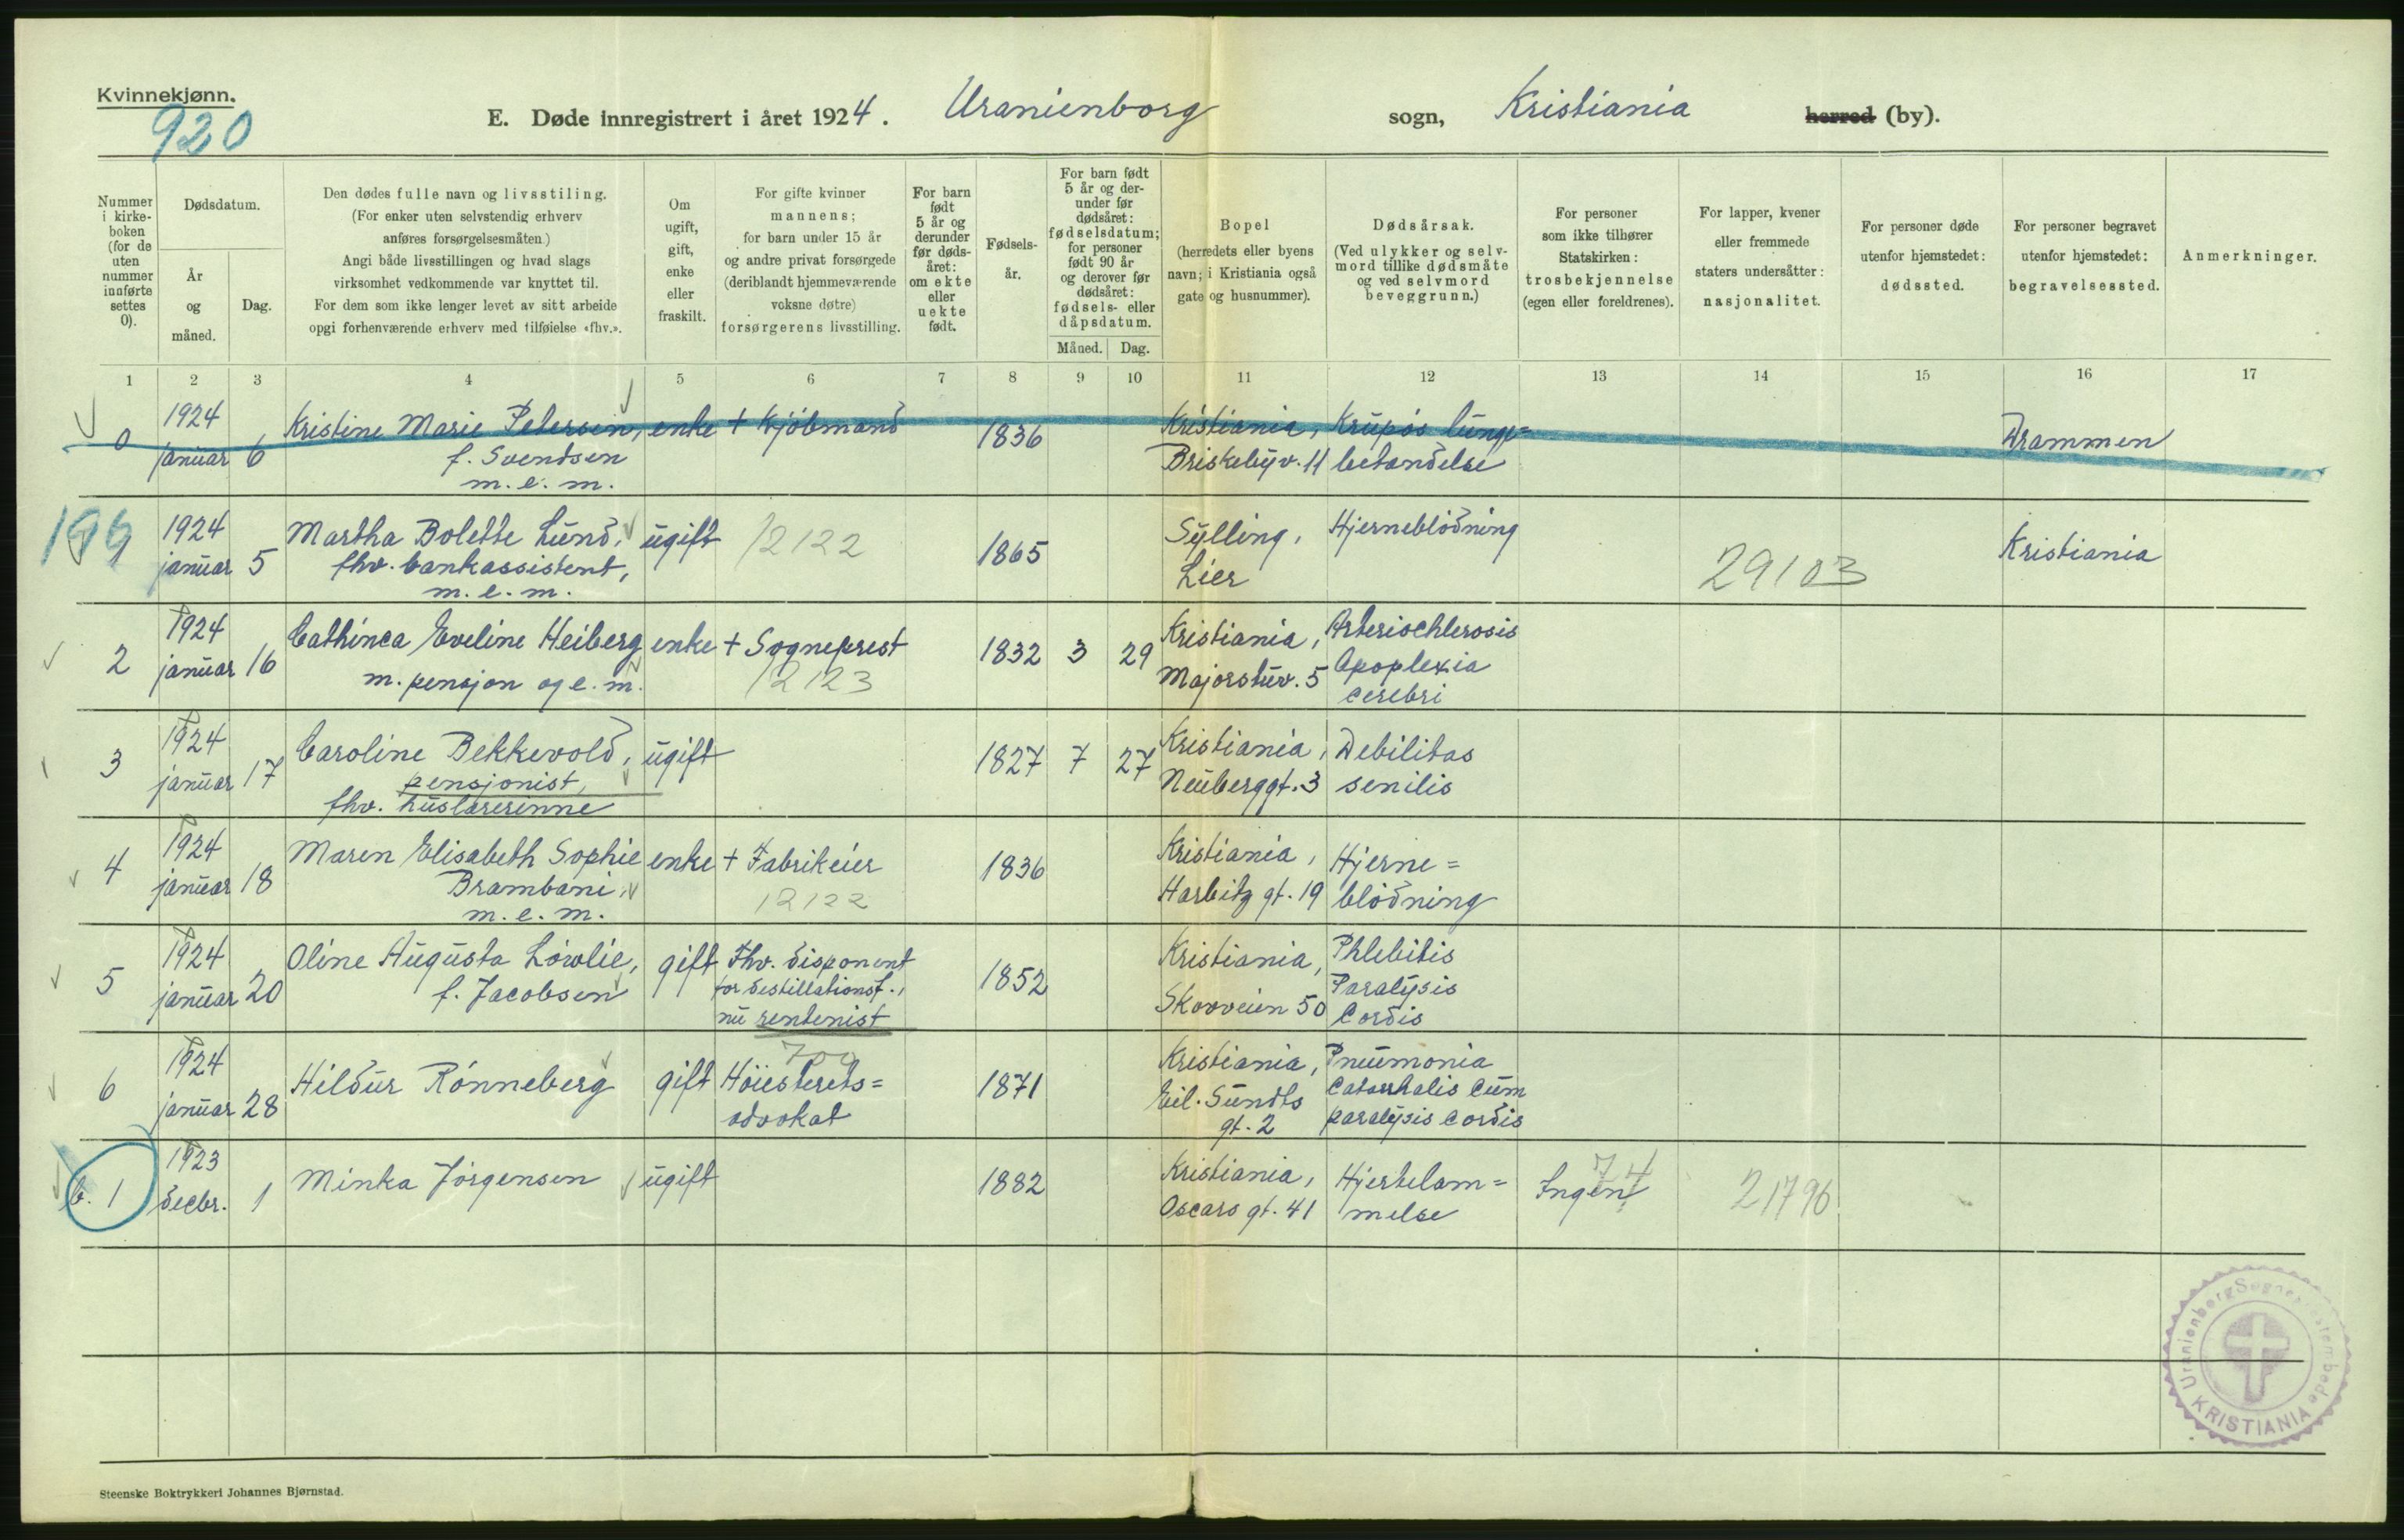 Kvinnekjønn.
920
E. Døde innregistrert i året 1924. Uranienborg sogn, Kristiania herred (by).
Nummer i kirkeboken (for de uten nummer innførte settes 0).
Dødsdatum.
År og måned.
Dag.
Den dødes fulle navn og livsstiling.
(For enker uten selvstendig erhverv
anføres forsørgelsesmåten.)
Angi både livsstillingen og hvad slags
virksomhet vedkommende var knyttet til.
For dem som ikke lenger levet av sitt arbeide
opgi forhenværende erhverv med tilføielse «fhv.».
Om ugift, gift, enke eller fraskilt.
For gifte kvinner
mannens;
for barn under 15 år
og andre privat forsørgede
(deriblandt hjemmeværende
voksne døtre)
forsørgerens livsstilling.
For barn født 5 år og derunder før dødsåret: om ekte eller uekte født.
Fødselsår.
For barn født 5 år og derunder før dødsåret: fødselsdatum; for personer født 90 år og derover før dødsåret: fødsels- eller dåpsdatum.
Måned. Dag.
Bopel
(herredets eller byens
navn; i Kristiania også
gate og husnummer).
Dødsårsak.
(Ved ulykker og selvmord tillike dødsmåte
og ved selvmord
beveggrunn.)
For personer
som ikke tilhører
Statskirken:
trosbekjennelse
(egen eller foreldrenes).
For lapper, kvener
eller fremmede
staters undersåtter:
nasjonalitet.
For personer døde
utenfor hjemstedet:
dødssted.
For personer begravet
utenfor hjemstedet:
begravelsessted.
Anmerkninger.
1 2 3 4 5 6 7 8 9 10 11 12 13 14 15 16 17
0 1924 januar 6 Kristine Marie Petersen, enke + Kjöbmand 1836 Kristiania, Krupös lunge= Drammen
f. Svendsen Briskebyv. 11 betændelse
m. e. m.
1924 januar 5 Martha Bolette Lund, ugift 12122 1865 Sylling, Hjerneblödning 29103 Kristiania
fhv. bankassistent, Lier
m. e. m.
2 1924 januar 16 Cathinca Eveline Heiberg enke + Sogneprest 1832 3 29 Kristiania, Arteriochlerosis
m. pensjon og e. m. 12123 Majorstuv. 5 Apoplexia
cerebri
3 1924 januar 17 Caroline Bekkevold, ugift 1827 7 27 Kristiania, Debilitas
pensjonist, Neuberggt. 3 senilis
fhv. huslærerinne
4 1924 januar 18 Maren Elisabeth Sophie enke + Fabrikeier 1836 Kristiania, Hjerne=
Brambani, 12122 Harbitz gt. 19 blödning
m. e. m.
5 1924 januar 20 Oline Augusta Lövlie, gift Fhv. disponent 1852 Kristiania, Phlebitis
f. Jacobsen for destillationsf., Skovveien 50 Paralysis
nu rentenist Cordis
6 1924 januar 28 Hildur Rönneberg gift Höiesterets= 1871 Kristiania, Pneumonia
700 advokat Eil. Sundts Catarrhalis cum
gt. 2 paralysis cordis
b. 1 1923 decbr. 1 Minka Jörgensen ugift 1882 Kristiania, Hjertelam= Ingen 74 21796
Oscars gt. 41 melse
Uranienborg Sogneprestembede
KRISTIANIA
Steenske Boktrykkeri Johannes Bjørnstad.